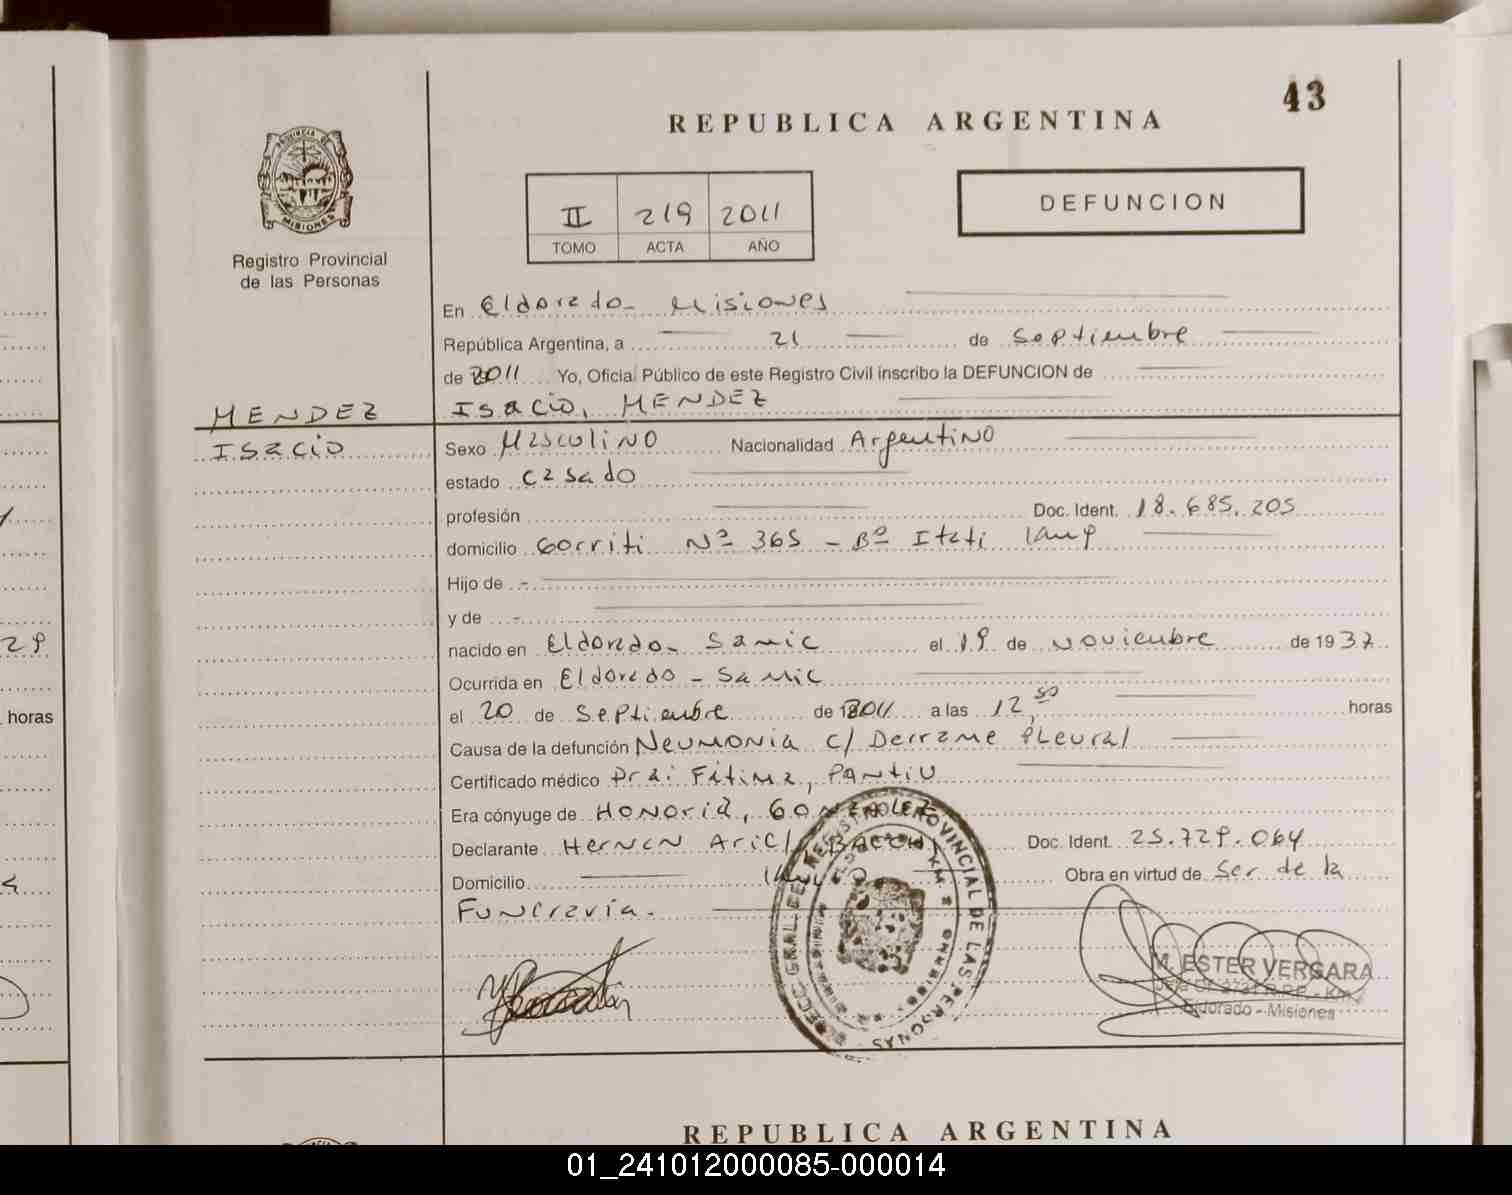 43
REPUBLICA ARGENTINA
PROVINCIA DE
MISIONES
Registro Provincial
de las Personas
II 219 2011
TOMO ACTA AÑO
DEFUNCION
En Eldorado - Misiones
República Argentina, a 21 de Septiembre
de 2011 Yo, Oficial Público de este Registro Civil inscribo la DEFUNCION de
MENDEZ
Isacio
Isacio, MENDEZ
Sexo Masculino Nacionalidad Argentino
estado casado
profesión Doc. Ident. 18.685.205
domicilio Gorriti Nº 365 - Bº Itati
Hijo de -
y de -
nacido en Eldorado - Samic el 19 de Noviembre de 1937
Ocurrida en Eldorado - Samic
el 20 de Septiembre de 2011 a las 12,50 horas
Causa de la defunción Neumonia c/ Derrame Pleural
Certificado médico Dra: Fatima, PANTIU
Era cónyuge de Honoria, GONZALEZ
Declarante Hernan Ariel, Doc. Ident. 25.729.064
Domicilio Obra en virtud de Ser de la
Funeraria.
M. ESTER VERGARA
Eldorado - Misiones
29
horas
REPUBLICA ARGENTINA
01_241012000085-000014